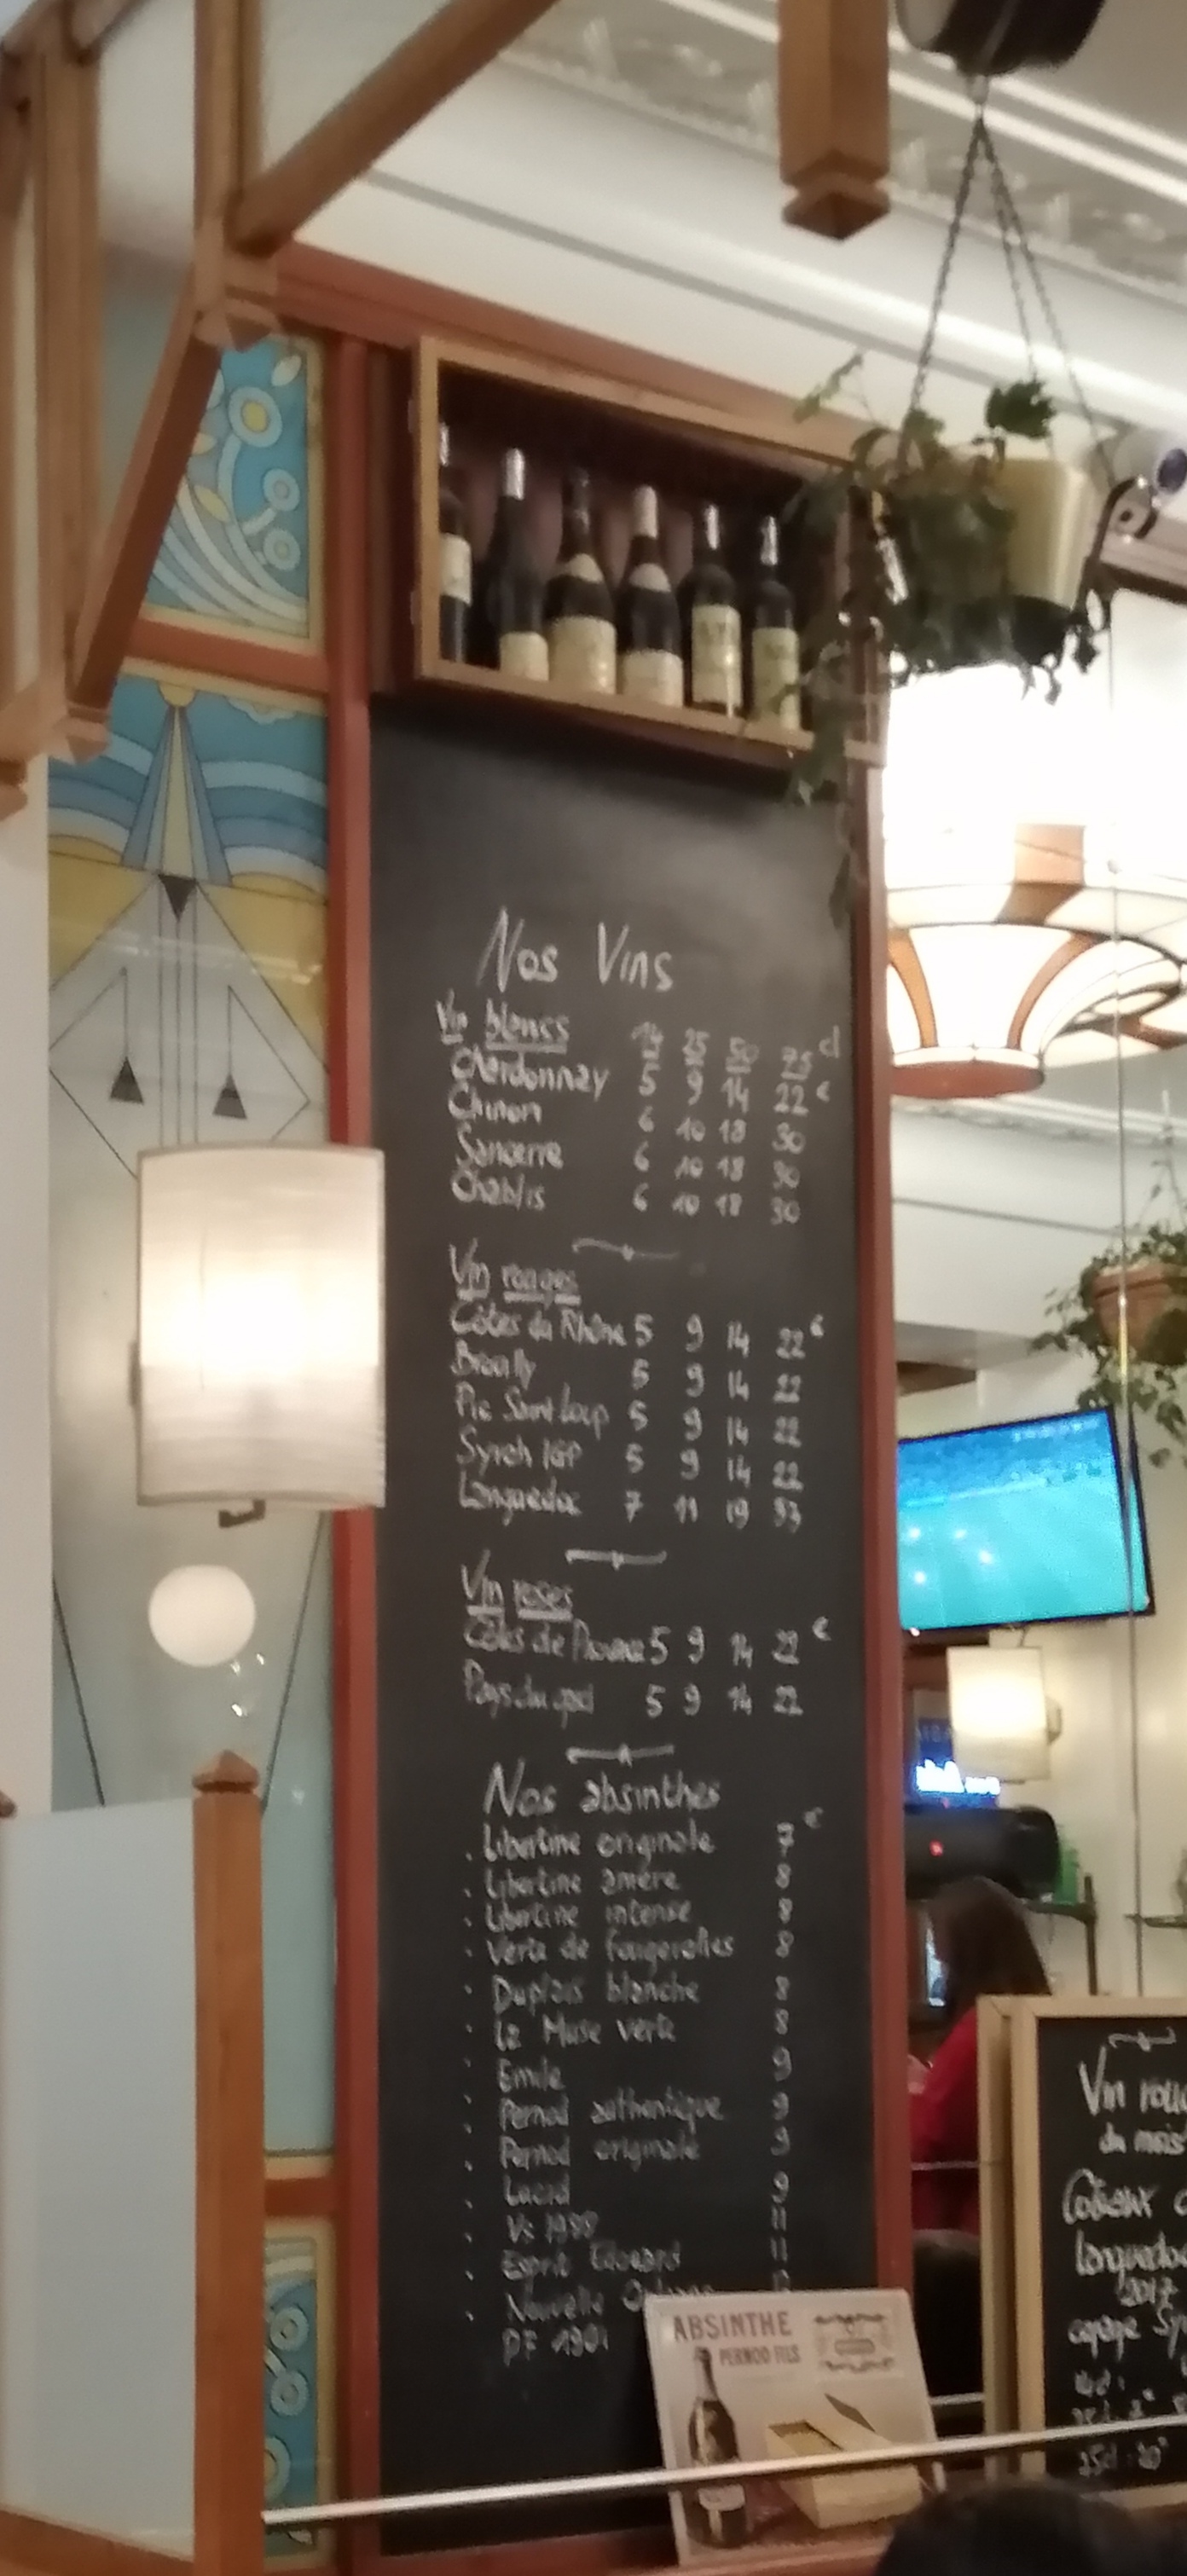 Nos Vins
Vin blancs 14 25 50 75 cl
Chardonnay 5 9 14 22 €
Chinon 6 10 18 30
Sancerre 6 10 18 30
Chablis 6 10 18 30
Vin rouges
Côtes du Rhône 5 9 14 22 €
Brouilly 5 9 14 22
Pic Saint Loup 5 9 14 22
Syrah IGP 5 9 14 22
Languedoc 7 11 19 33
Vin roses
Côtes de Provence 5 9 14 22 €
Pays du gard 5 9 14 22
Nos absinthes
. Libertine originale 7 €
. Libertine amère 8
. Libertine intense 8
. Verte de fougerolles 8
. Duplais blanche 8
. La Muse verte 8
. Emile 9
. Pernod authentique 9
. Pernod originale 9
. Lucid 9
. Vs 1898 11
. Esprit Edouard 11
. Nouvelle
PF 1901
ABSINTHE
PERNOD FILS
Vin roug
du mois
Coteaux
Languedoc
2017
cepage